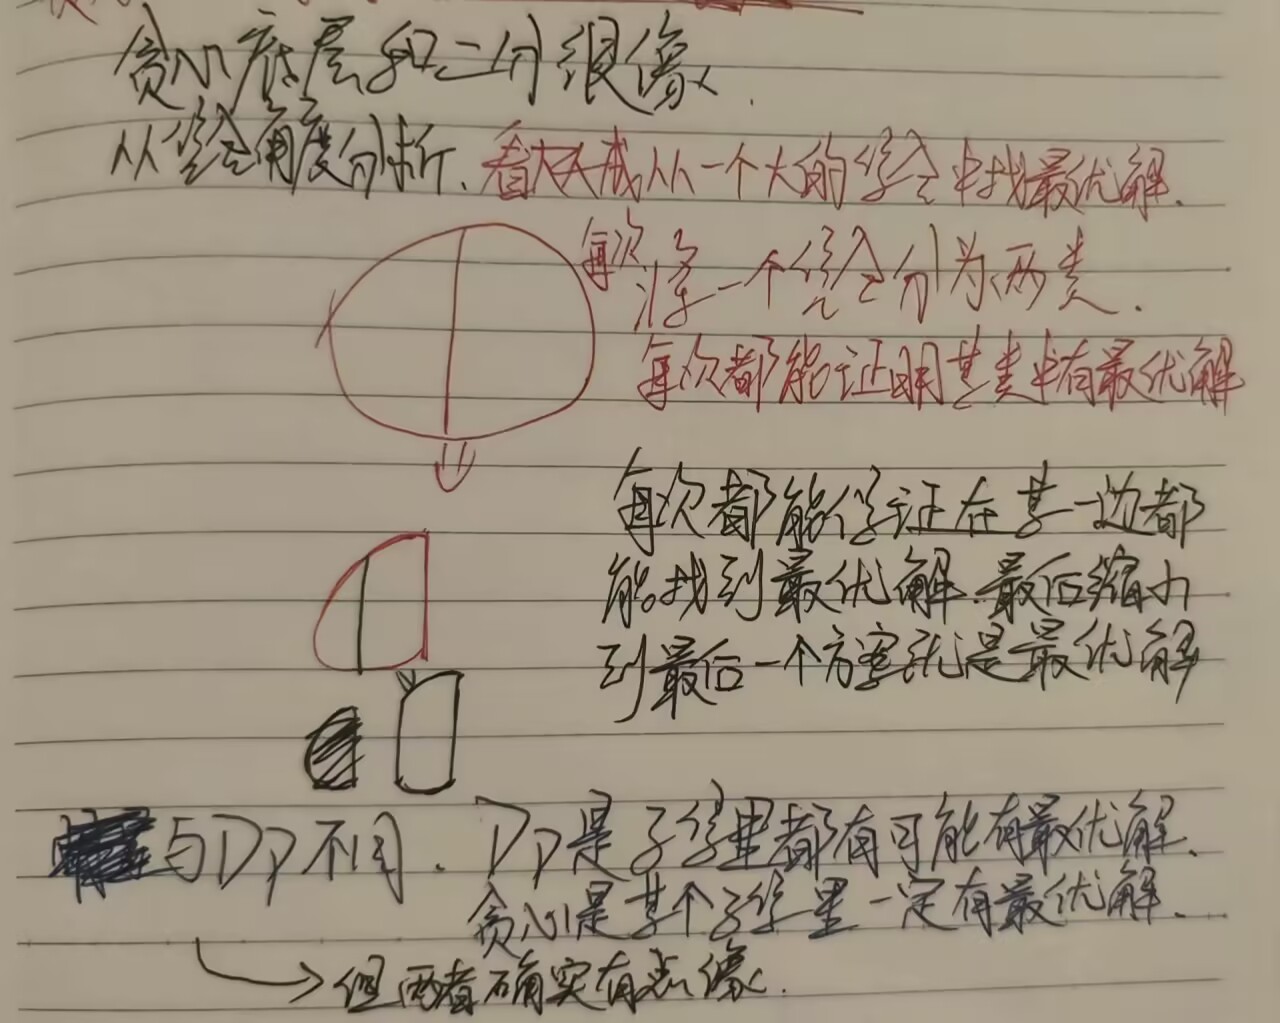 贪心底层和二分很像.
从集合角度分析. 看大天成从一个大的集合中找最优解.
每次将一个集合分为两类.
每次都能证明某类中有最优解
每次都能保证在某一边都
能找到最优解.最后缩小
到最后一个方案就是最优解
与Dp不同. Dp是子集里都有可能有最优解.
贪心是某个子集里一定有最优解.
但两者确实有点像.